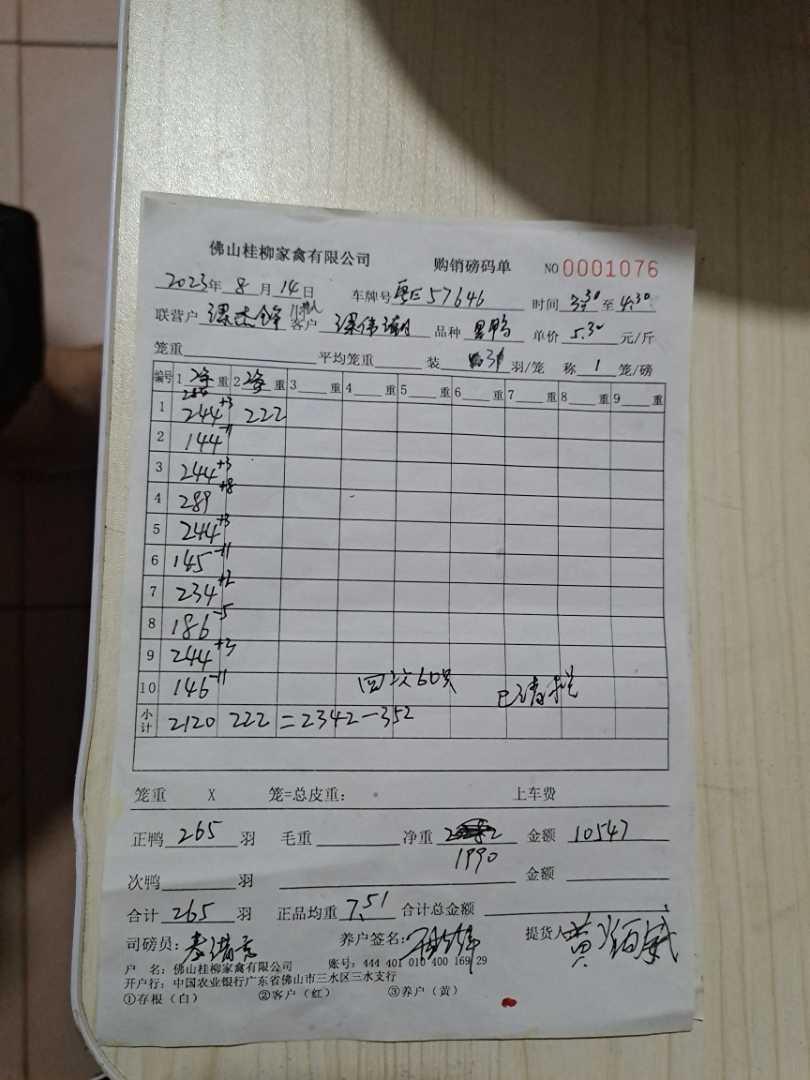 佛山桂柳家禽有限公司 购销磅码单 NO 0001076
2023年 8 月 14 日 车牌号 粤E57646 时间 3:30 至 4:30
联营户 客户 品种 黑鸭 单价 5.30 元/斤
笼重 平均笼重 装 31 羽/笼 称 1 笼/磅
编号 1 重 2 重 3 重 4 重 5 重 6 重 7 重 8 重 9 重
1 244+3 222
2 144-11
3 244+3
4 289+8
5 244+3
6 145-11
7 234+2
8 186-5
9 244+3
10 146-11 四次60只
小计 2120 222 = 2342-352
笼重 X 笼=总皮重: 上车费
正鸭 265 羽 毛重 净重 金额 10547
1990
次鸭 羽 金额
合计 265 羽 正品均重 7.51 合计总金额
司磅员: 养户签名: 提货人
户 名: 佛山桂柳家禽有限公司 账号: 444 401 010 400 169 29
开户行: 中国农业银行广东省佛山市三水区三水支行
①存根(白) ②客户(红) ③养户(黄)